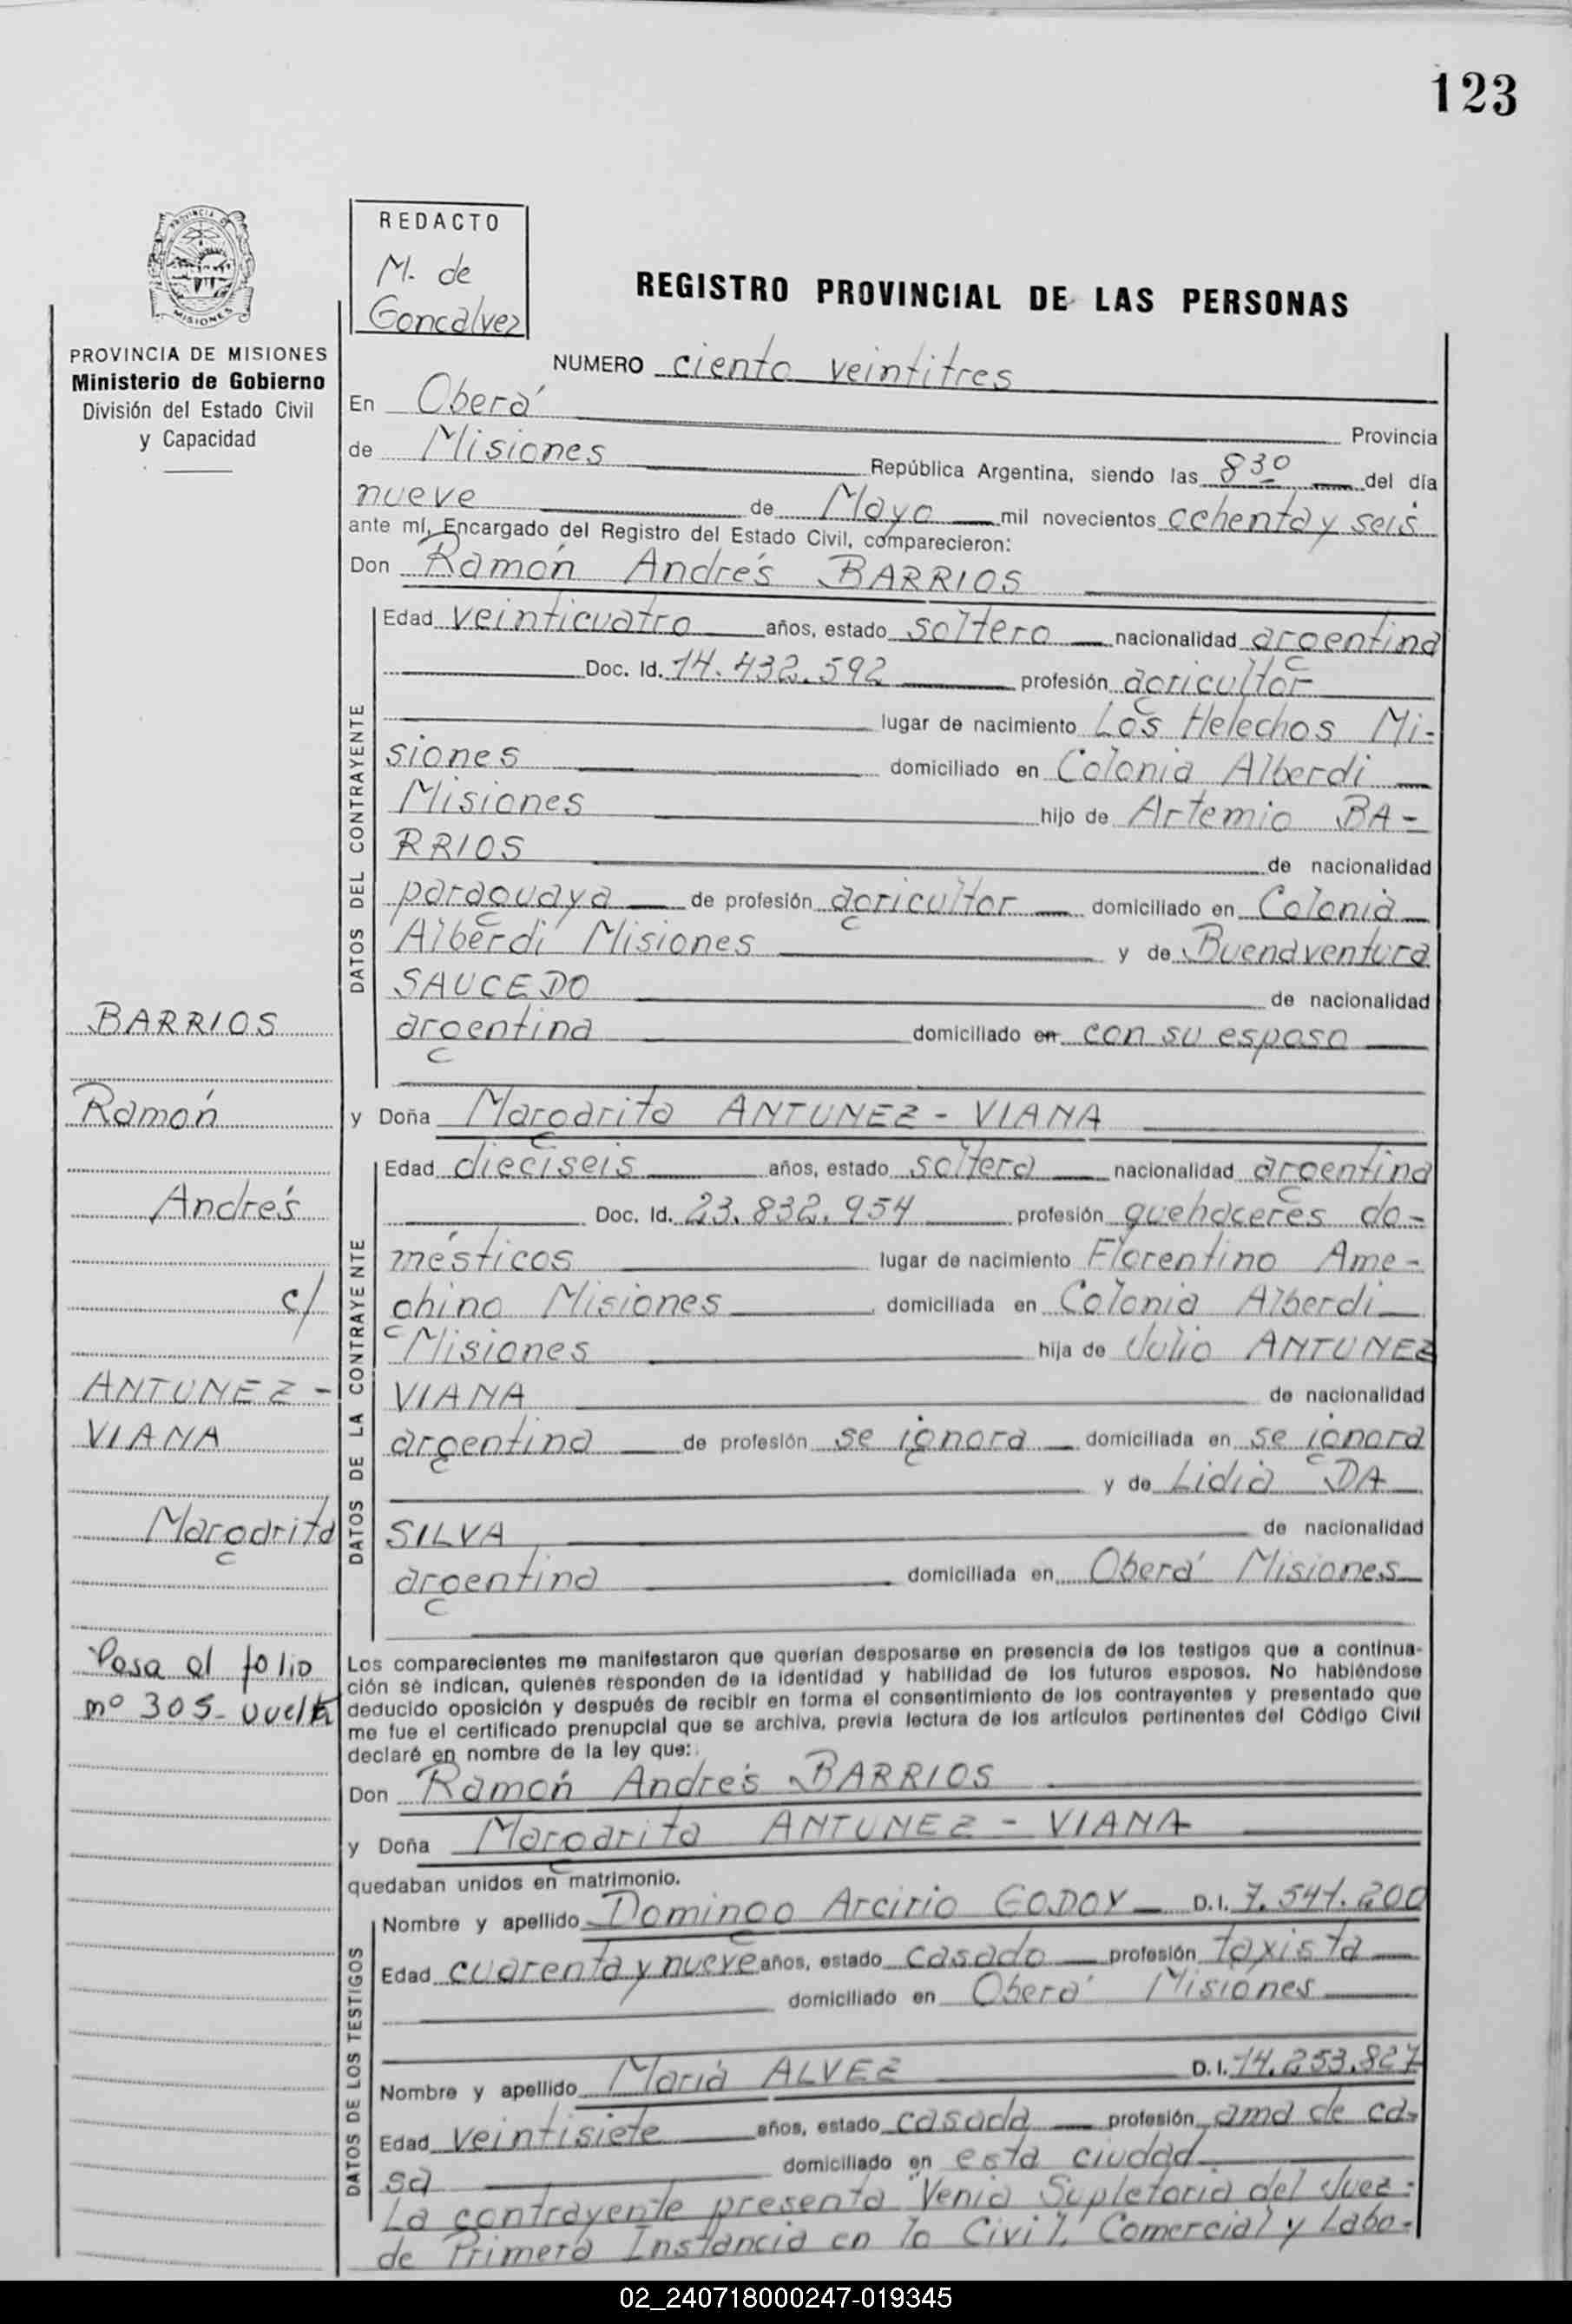 123
REDACTO
M. de
Goncalvez
REGISTRO PROVINCIAL DE LAS PERSONAS
PROVINCIA DE MISIONES
Ministerio de Gobierno
División del Estado Civil
y Capacidad
NUMERO ciento veintitres
En Oberá Provincia
de Misiones República Argentina, siendo las 8 30 del día
nueve de Mayo mil novecientos ochenta y seis
ante mí, Encargado del Registro del Estado Civil, comparecieron:
Don Ramón Andrés BARRIOS
DATOS DEL CONTRAYENTE
Edad veinticuatro años, estado soltero nacionalidad argentina
Doc. Id. 14.432.592 profesión agricultor
lugar de nacimiento Los Helechos Mi-
siones domiciliado en Colonia Alberdi
Misiones hijo de Artemio BA-
RRIOS de nacionalidad
paraguaya de profesión agricultor domiciliado en Colonia
Alberdi Misiones y de Buenaventura
SAUCEDO de nacionalidad
argentina domiciliado en con su esposo
BARRIOS
Ramón
Andrés
c/
ANTUNEZ -
VIANA
Margarita
Pasa al folio
nº 305 - vuelta
y Doña Margarita ANTUNEZ - VIANA
DATOS DE LA CONTRAYENTE
Edad dieciseis años, estado soltera nacionalidad argentina
Doc. Id. 23.832.954 profesión quehaceres do-
mésticos lugar de nacimiento Florentino Ame-
ghino Misiones domiciliada en Colonia Alberdi
Misiones hija de Julio ANTUNEZ
VIANA de nacionalidad
argentina de profesión se ignora domiciliada en se ignora
y de Lidia DA
SILVA de nacionalidad
argentina domiciliada en Oberá Misiones
Los comparecientes me manifestaron que querían desposarse en presencia de los testigos que a continua-
ción se indican, quienes responden de la identidad y habilidad de los futuros esposos. No habiéndose
deducido oposición y después de recibir en forma el consentimiento de los contrayentes y presentado que
me fue el certificado prenupcial que se archiva, previa lectura de los artículos pertinentes del Código Civil
declaré en nombre de la ley que:
Don Ramón Andrés BARRIOS
y Doña Margarita ANTUNEZ - VIANA
quedaban unidos en matrimonio.
DATOS DE LOS TESTIGOS
Nombre y apellido Domingo Arcirio GODOY D.I. 7.541.200
Edad cuarenta y nueve años, estado casado profesión taxista
domiciliado en Oberá Misiones
Nombre y apellido María ALVEZ D.I. 14.253.827
Edad veintisiete años, estado casada profesión ama de ca-
sa domiciliado en esta ciudad.
La contrayente presenta Venia Supletoria del Juez
de Primera Instancia en lo Civil, Comercial y Labo-
02_240718000247-019345